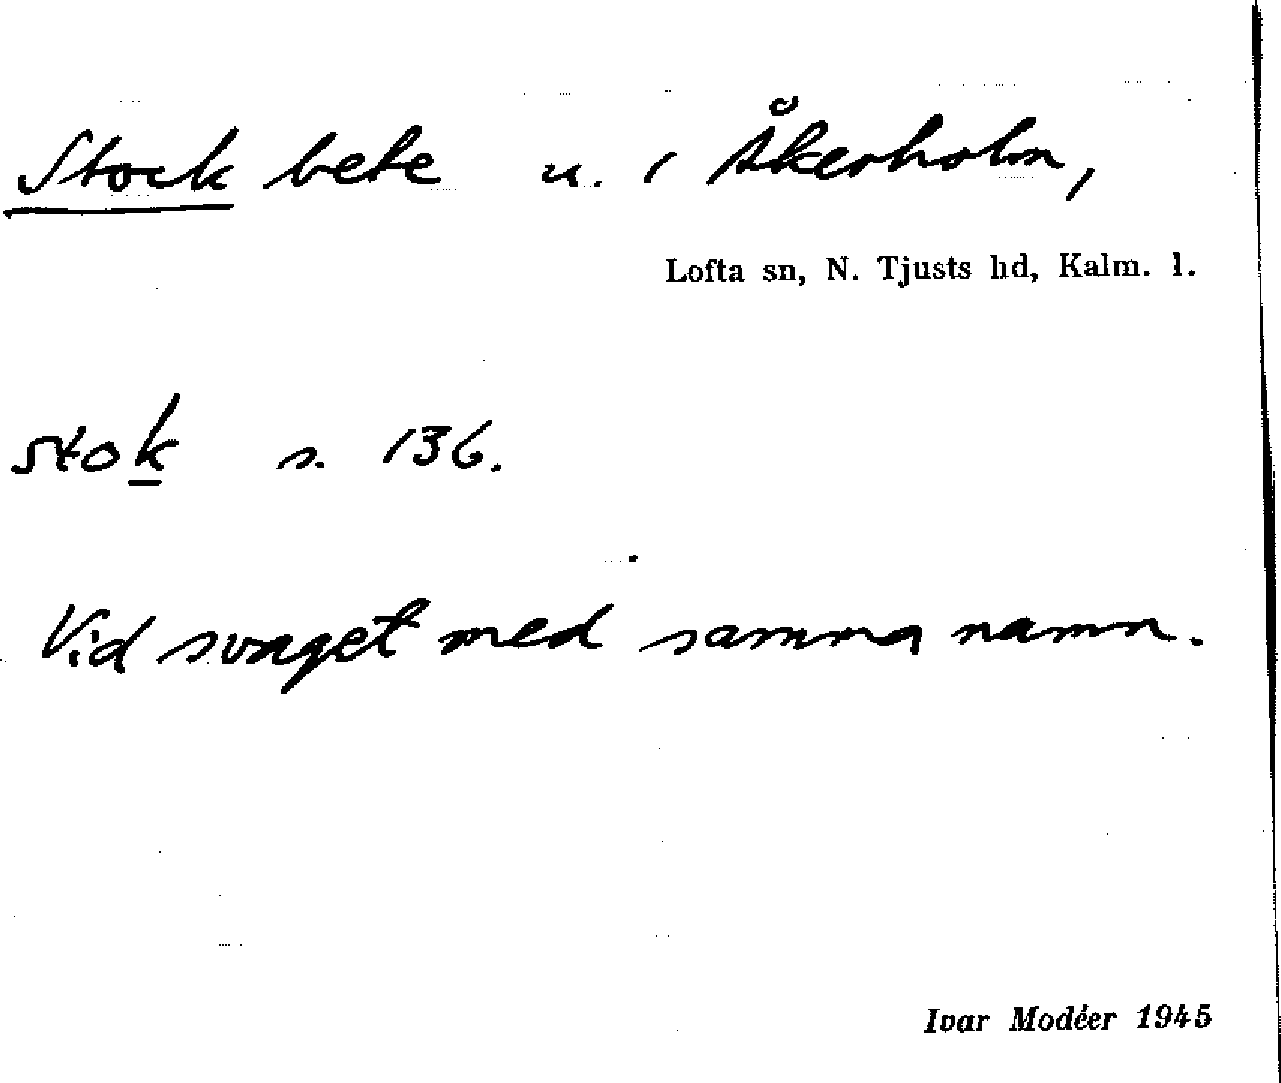 Stock bete u. i Åkerholm,
Lofta sn, N. Tjusts hd, Kalm. l.
stok s. 136.
Vid svaget med samma namn.
Ivar Modéer 1945